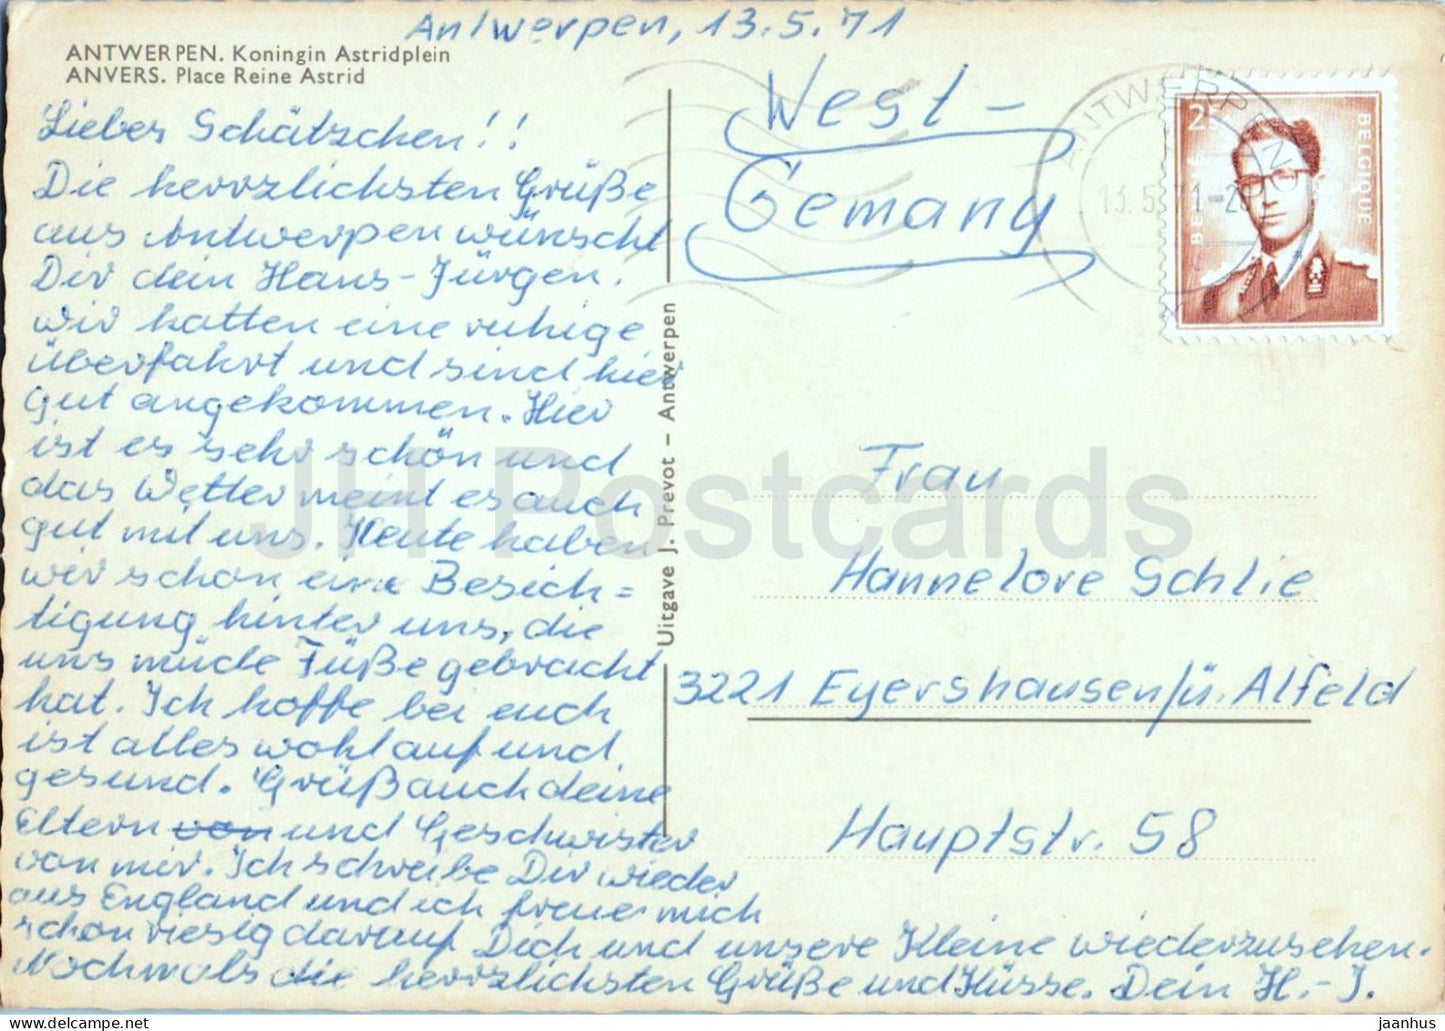 Antwerpen, 13.5.71
ANTWERPEN. Koningin Astridplein
ANVERS. Place Reine Astrid
Liebes Schätzchen!!
Die herzlichsten Grüße
aus Antwerpen wünscht
Dir dein Hans-Jürgen.
Wir hatten eine ruhige
überfahrt und sind hier
gut angekommen. Hier
ist es sehr schön und
das Wetter meint es auch
gut mit uns. Heute haben
wir schon eine Besich=
tigung hinter uns, die
uns müde Füße gebracht
hat. Ich hoffe bei euch
ist alles wohlauf und
gesund. Grüß auch deine
Eltern von und Geschwister
von mir. Ich schreibe Dir wieder
aus England und ich freue mich
schon riesig darauf Dich und unsere Kleine wiederzusehen.
Nochmals die herzlichsten Grüße und Küsse. Dein H.-J.
Uitgave J. Prevot – Antwerpen
West-
Gemany
ANTWERPEN
13.5.71-2
2F
BELGIE
BELGIQUE
Frau
Hannelore Schlie
3221 Eyershausen/ü. Alfeld
Hauptstr. 58
JH Postcards
jaanhus
eu.delcampe.net